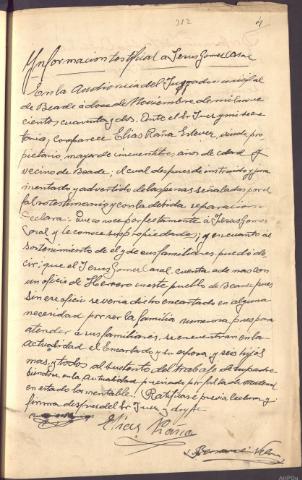 212
4
Informacion testifical a Jesus Gomez Casal
En la Audiencia del Juzgado municipal
de Beade a doce de Noviembre de mil nueve
cientos cuarenta y dos. Ante el Sr Juez y mi secre
taria, comparece Elias Raña Estevez, viudo pro
pietario mayor de cincuenta años de edad y
vecino de Beade, el cual despues de instruido y jura
mentado y advertido de las penas señaladas por el
falso testimonio y con la debida separacion
declara: Que conoce perfectamente a Jesus Gomez
Casal y le conoce sus propiedades; y en cuanto al
sostenimiento de el y de sus familiares puede de
cir; que el Jesus Gomez Casal, cuenta ademas con
un oficio de Herrero en este pueblo de Beade pues
sin ese oficio se veria dicho encartado en alguna
necesidad por ser la familia numerosa pues para
atender a sus familiares, se encuentran en la
actualidad el Encartado y su esposa y seis hijos
mas, y todos al sustento del trabajo de su padre
en la actualidad por falta de material
en estado lamentable. Ratificase previa lectura y
firma despues del Sr Juez, doy fe.
Elias Raña